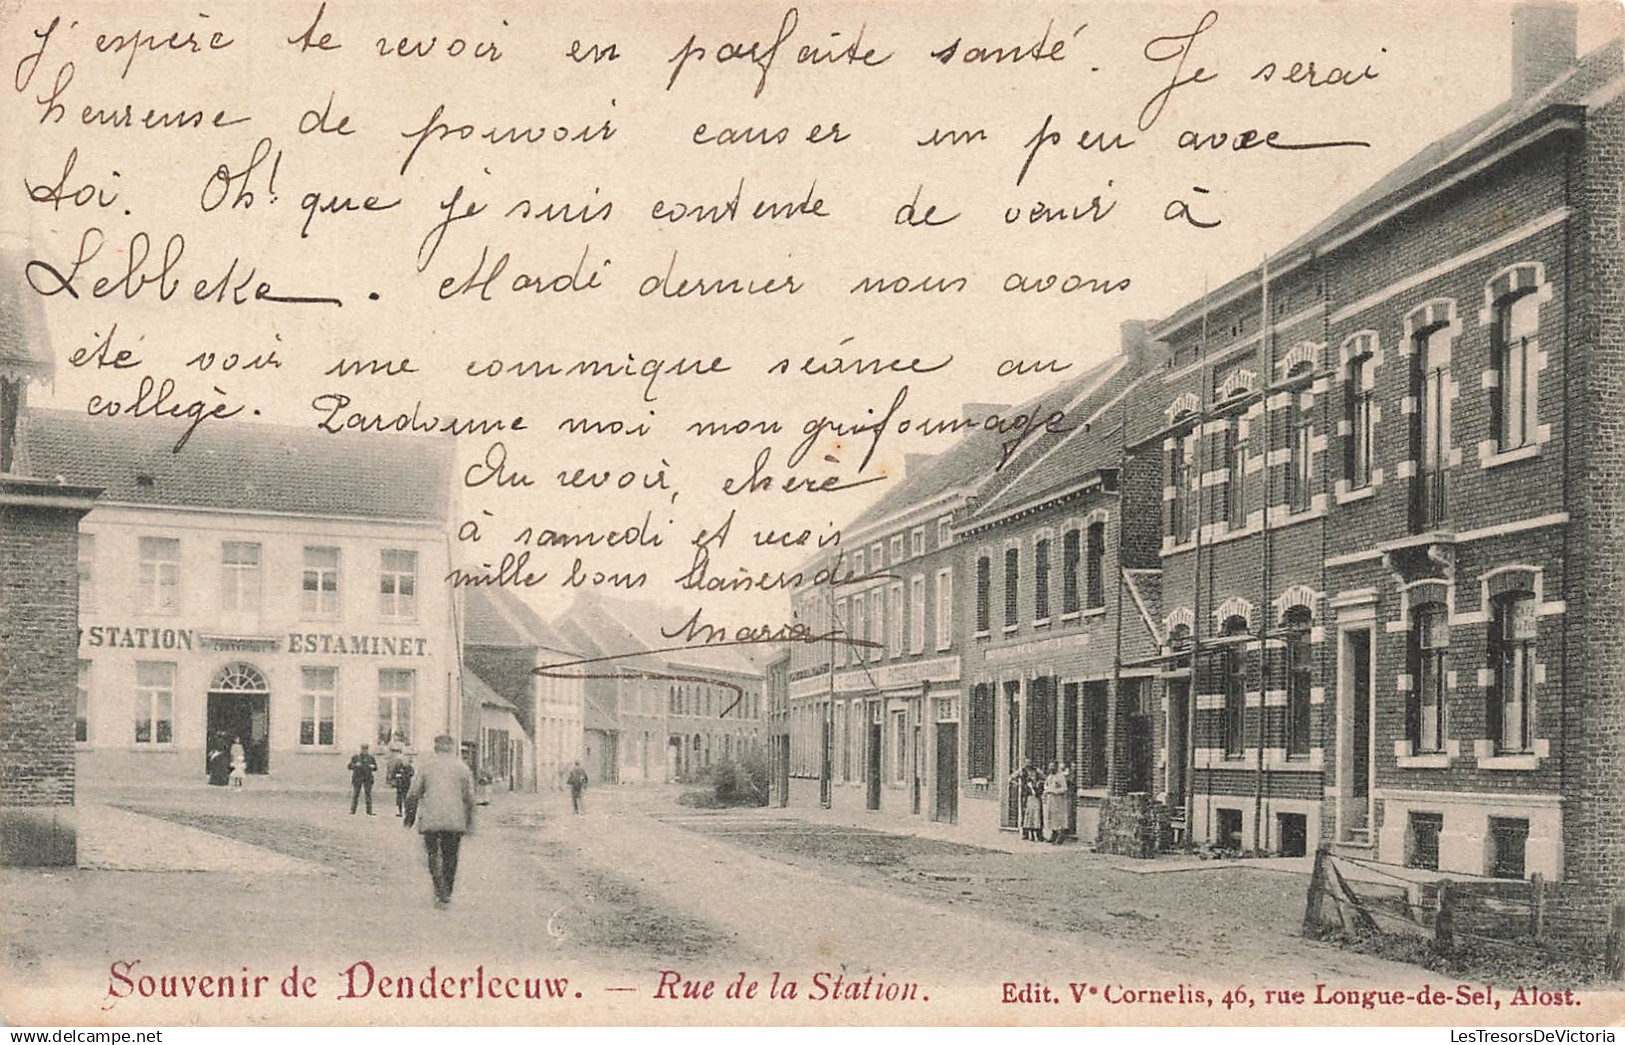 J'espère te revoir en parfaite santé. Je serai
heureuse de pouvoir causer un peu avec
toi. Oh! que je suis contente de venir à
Lebbeke. Mardi dernier nous avons
été voir une commique séance au
collegè. Pardonne moi mon grifounage.
Au revoir, chère
à samedi et recois
mille bons baisers de
Maria
STATION ESTAMINET.
Souvenir de Denderleeuw. — Rue de la Station.
Edit. Ve Cornelis, 46, rue Longue-de-Sel, Alost.
LesTresorsDeVictoria